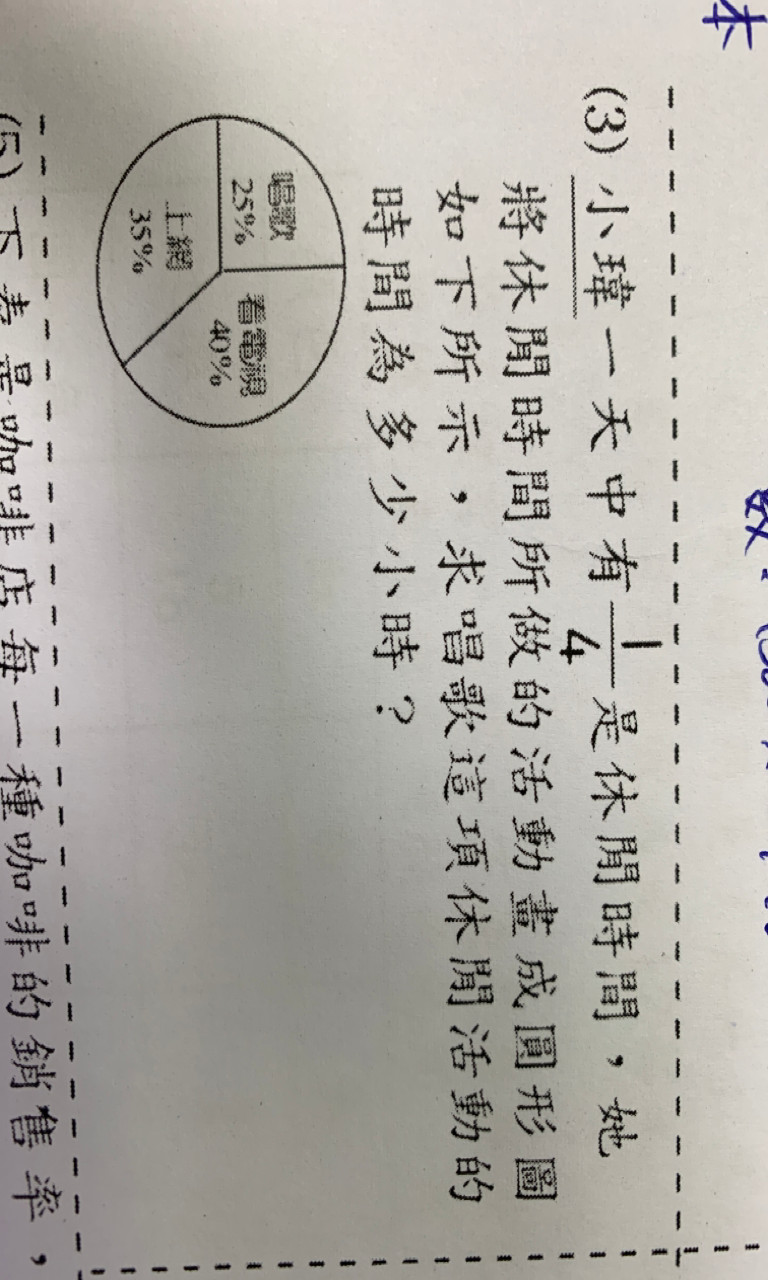 本
(3) 小瑋一天中有 1/4 是休閒時間,她
將休閒時間所做的活動畫成圓形圖
如下所示,求唱歌這項休閒活動的
時間為多少小時?
唱歌
25%
看電視
40%
上網
35%
(5) 下表是咖啡店每一種咖啡的銷售率,